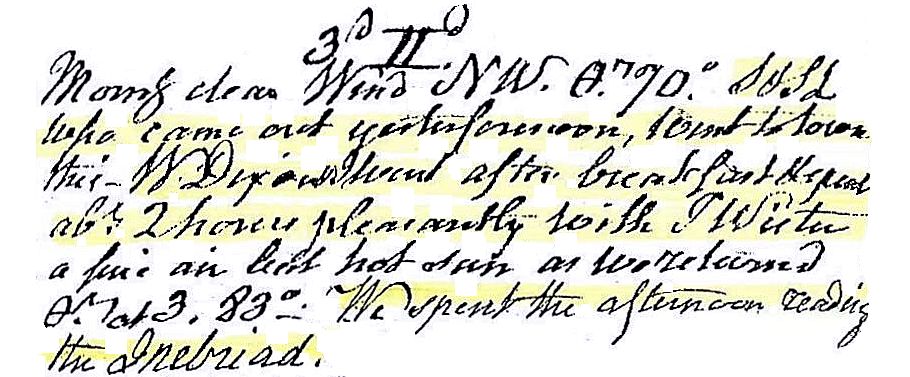 3d II d
Morng clear Wind NW. θr 70.° S &
who came out yesterforenoon, went to town
this - W Dixons went after breakfast &
abt 2 hours pleasantly with T
a fine air but hot sun as we returned
θr at 3. 83° - We spent the afternoon reading
the Inebriad.